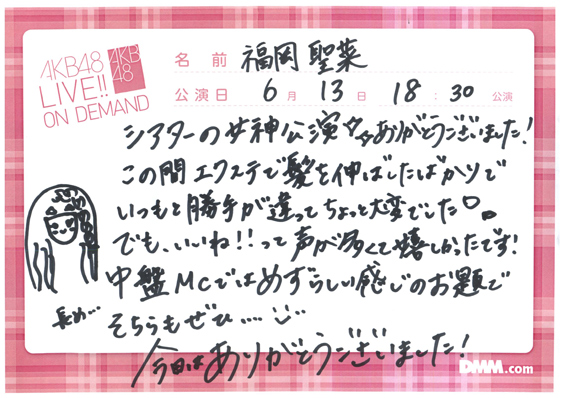 AKB48
LIVE!!
ON DEMAND
AKB
48
名前 福岡 聖菜
公演日 6月 13日 18:30 公演
シアターの女神公演ありがとうございました!
この間エクステで髪を伸ばしたばかりで
いつもと勝手が違ってちょっと大変でした
でも、いいね!!って声が多くて嬉しかったです!
中盤MCではめずらしい感じのお題で
そちらもぜひ....
長め...
今日はありがとうございました!
DMM.com